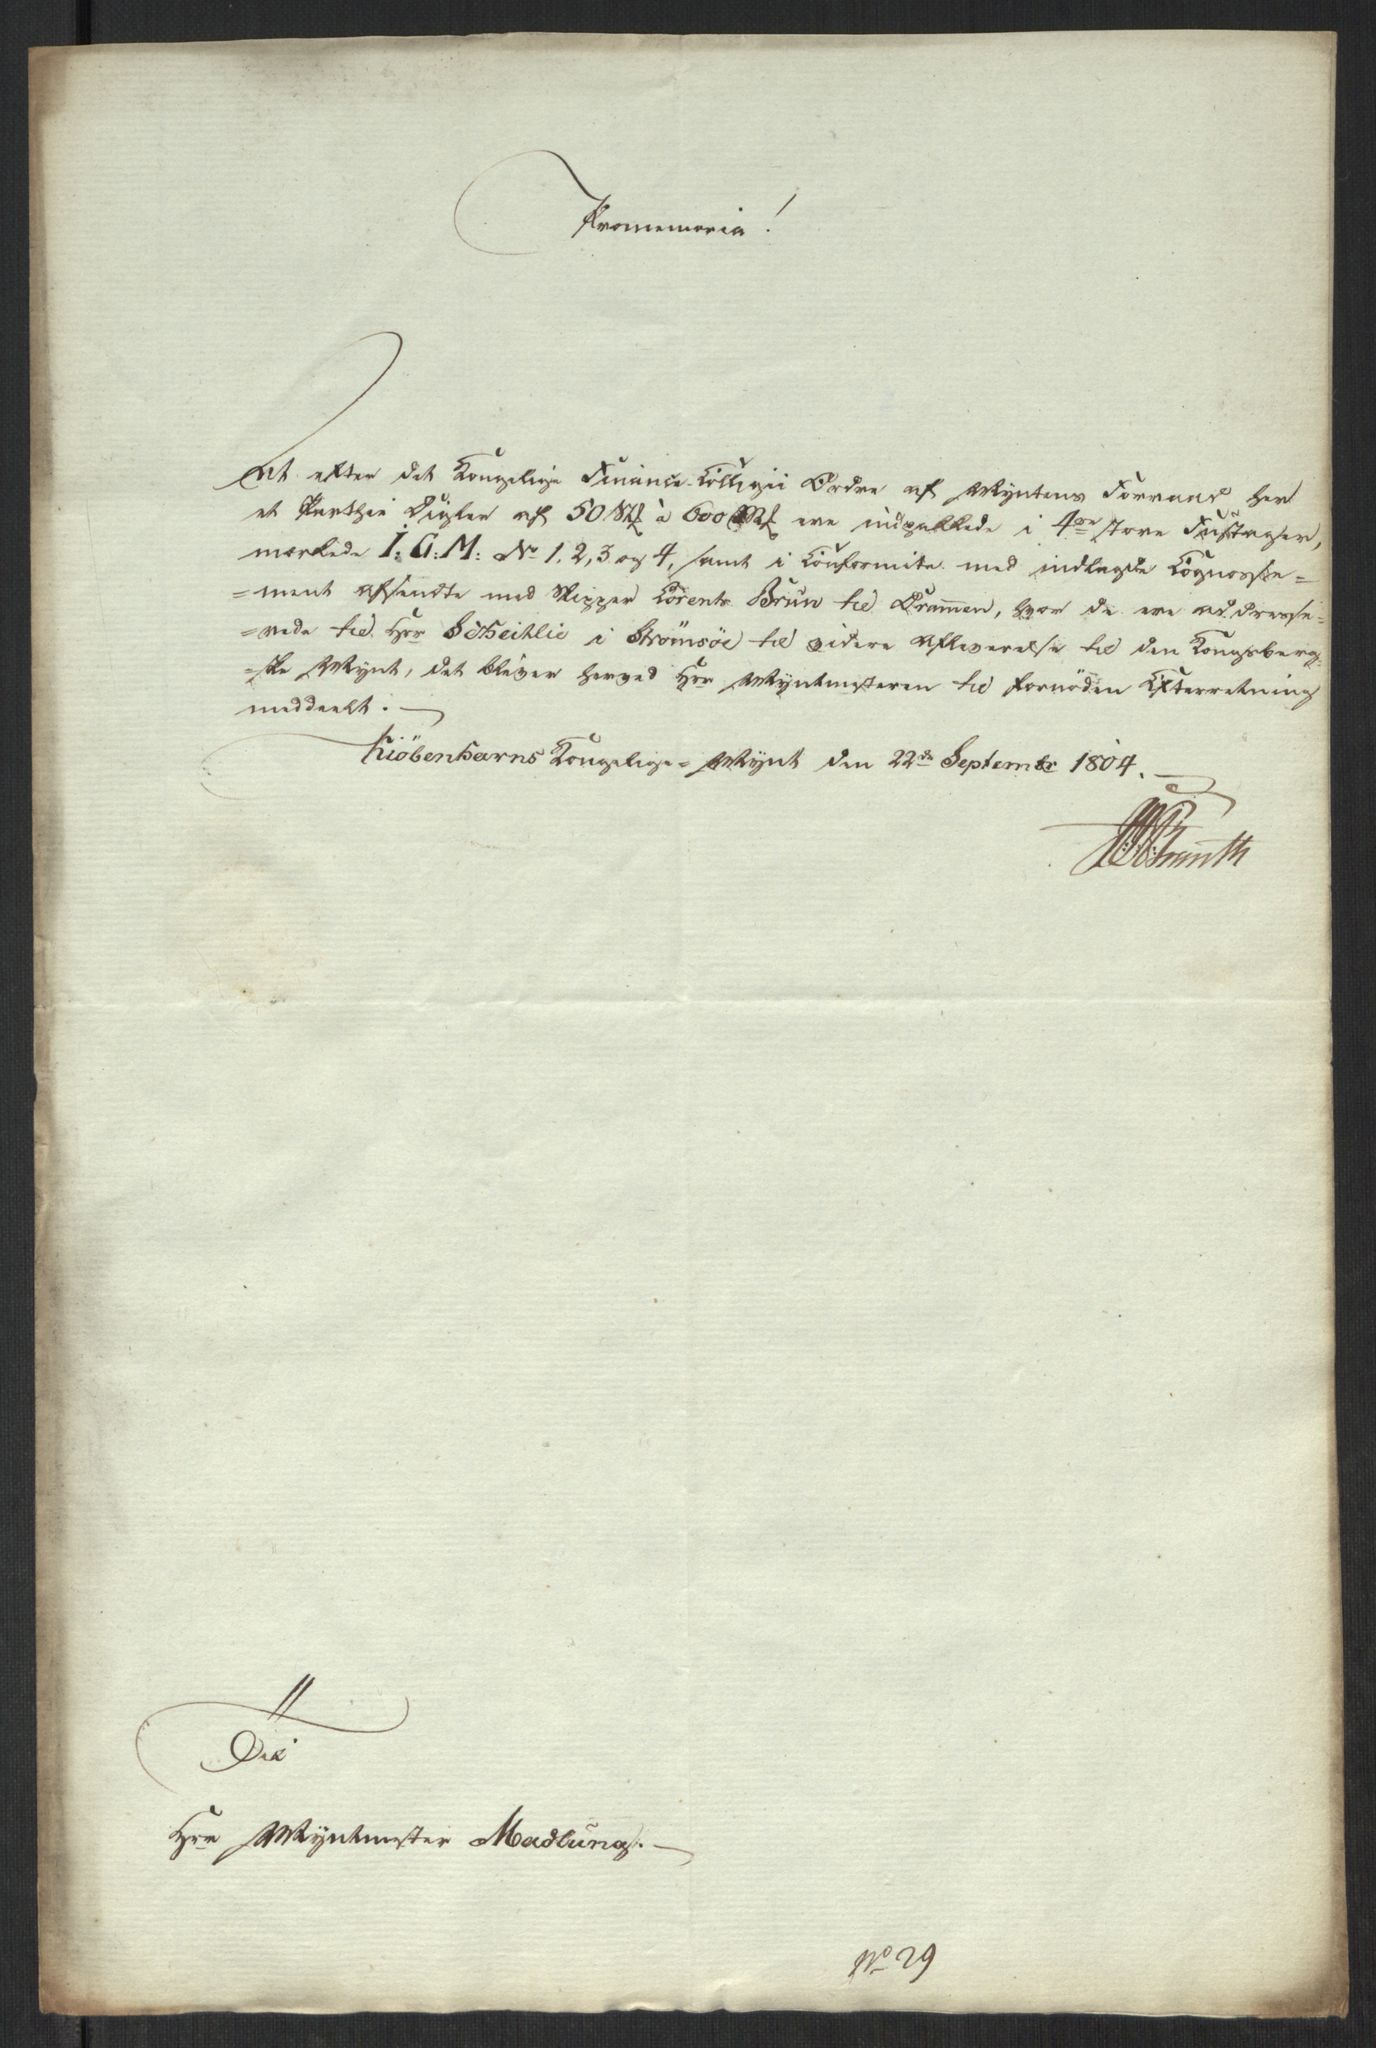 Promemoria!
At efter det Kongelige Finance-Collegii Ordre af Myntens Forraad her
et Parthie Digler af 50 Mk à 600 Mk ere indpakkede i 4re store Fustager,
mærkede I: G: M: No 1, 2, 3 og 4, samt i Conformite med indlagde Cognosse=
=ment afsendte med Skipper Lorents Brun til Dramen, hvor de ere addresse=
=rede til Hrr Scheitlie i Strømsöe til videre Afleverelse til den Kongsberg=
=ske Mynt, det bliver herved Hrr Myntmesteren til fornøden Efterretning
meddeelt.
Kiöbenhavns Kongelige Mynt den 22de September 1804.
Til
Hrr Myntmester Madelung.
No 29